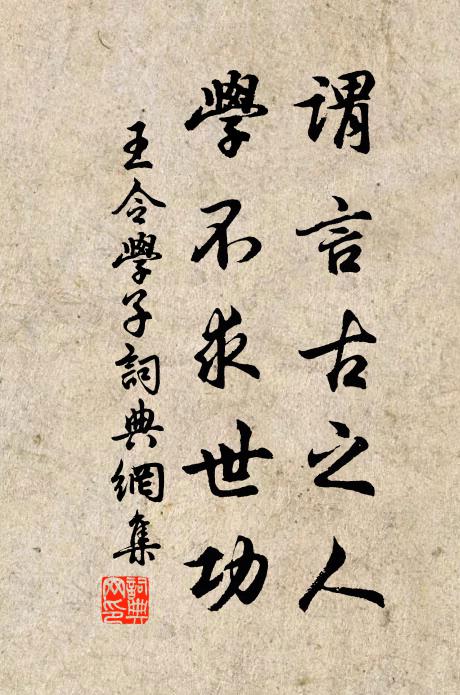 謂言古之人
學不求世功
王令學子詞典網集
詞典網印